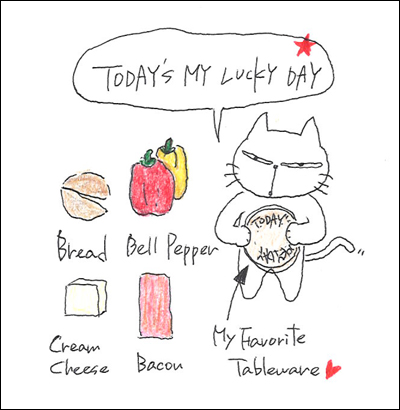 TODAY'S MY LUCKY DAY
Bread
Bell Pepper
TODAY'S
Cream
Cheese
Bacon
My Favorite
Tableware